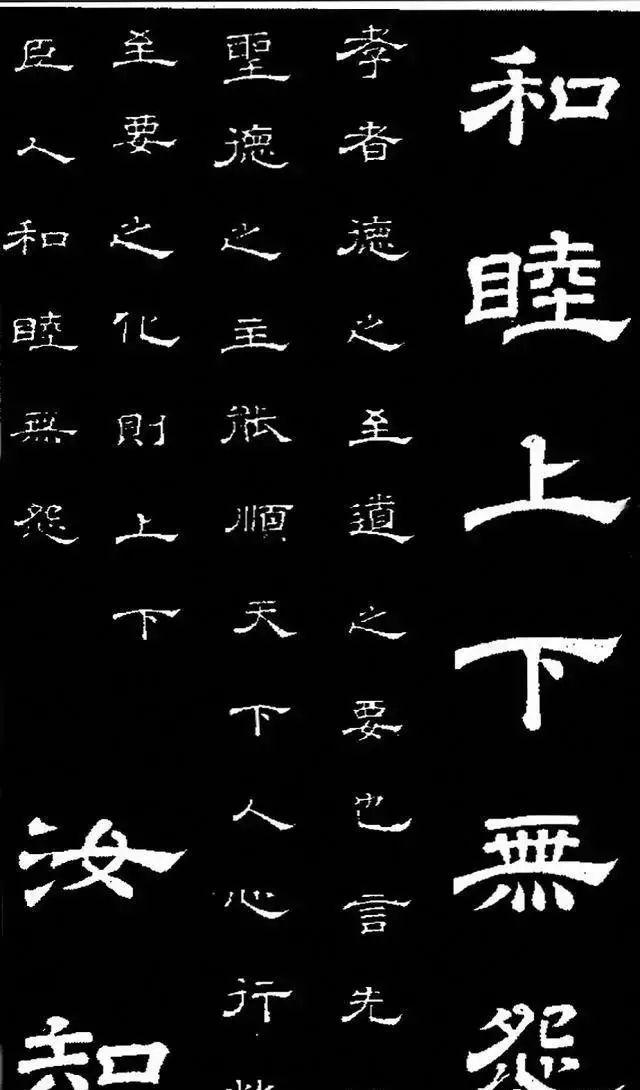 和睦上下無怨
孝者德之至道之要也言先
聖德之主能順天下人心行
至要之化則上下
臣人和睦無怨
汝知